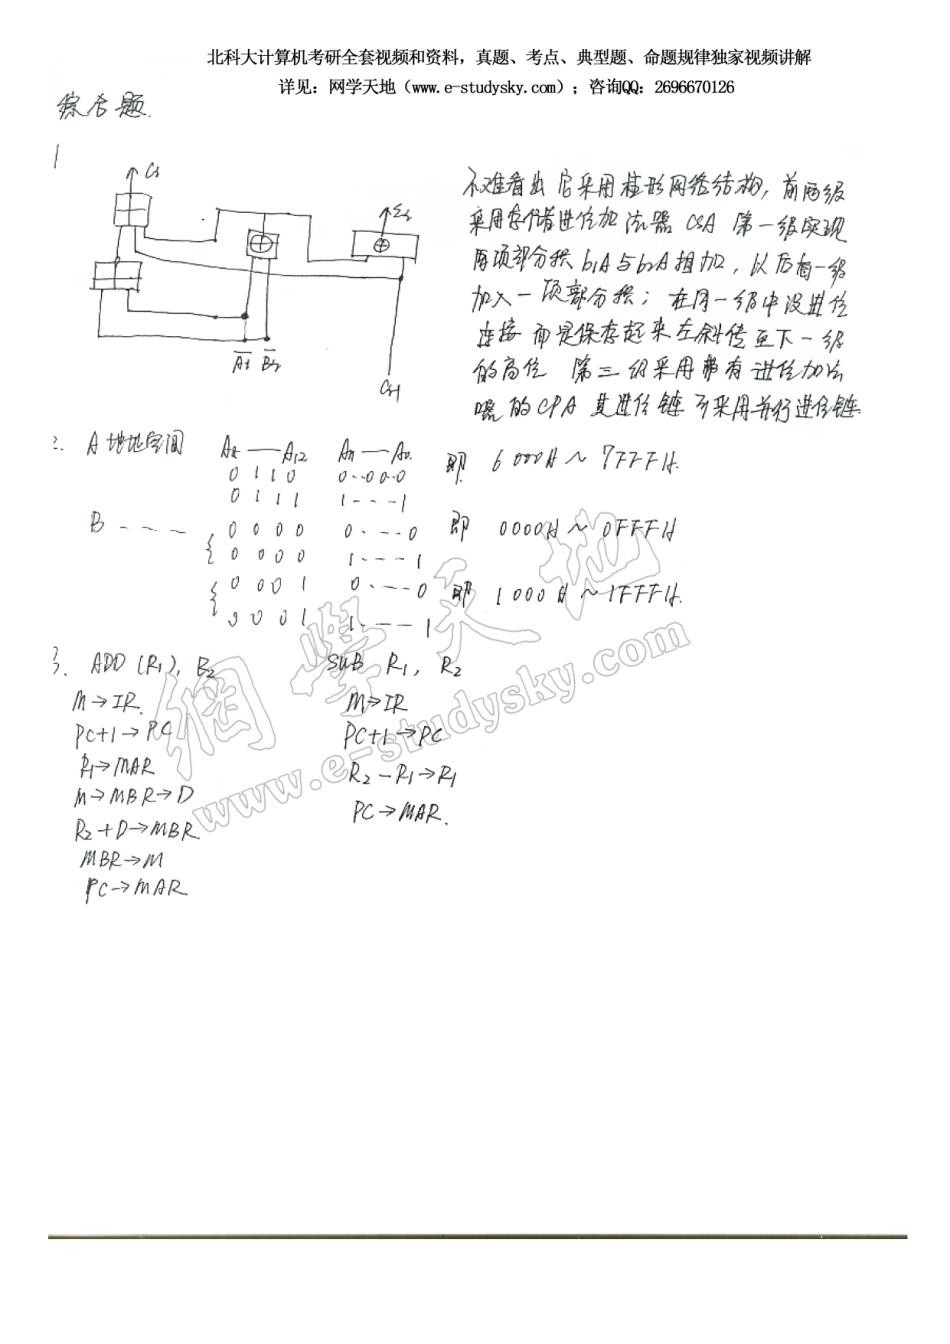 北科大计算机考研全套视频和资料，真题、考点、典型题、命题规律独家视频讲解
详见：网学天地（www.e-studysky.com）；咨询QQ：2696670126
综合题.
1
不难看出 它采用 网络结构, 前两级
采用存储进位加法器 CSA 第一级实现
两项部分积 b1A与b2A相加, 以后每一级
加入一项部分积; 在同一级中没进位
连接 而是保存起来左斜传至下一级
的高位 第三级采用带有进位加法
器的CPA 其进位链可采用并行进位链.
2. A地址空间 A12 A11 — A0. 即 6000H ~ 7FFFH.
0 1 1 0 0--00-0
0 1 1 1 1---1
B --- 0 0 0 0 0---0 即 0000H ~ 0FFFH
0 0 0 0 1---1
0 0 0 1 0---0 即 1000H ~ 1FFFH.
0 0 0 1 1---1
3. ADD (R1), R2 SUB R1, R2
M→IR. M→IR
PC+1→PC PC+1→PC
R1→MAR R2-R1→R1
M→MBR→D PC→MAR.
R2+D→MBR.
MBR→M
PC→MAR
網學天地
www.e-studysky.com